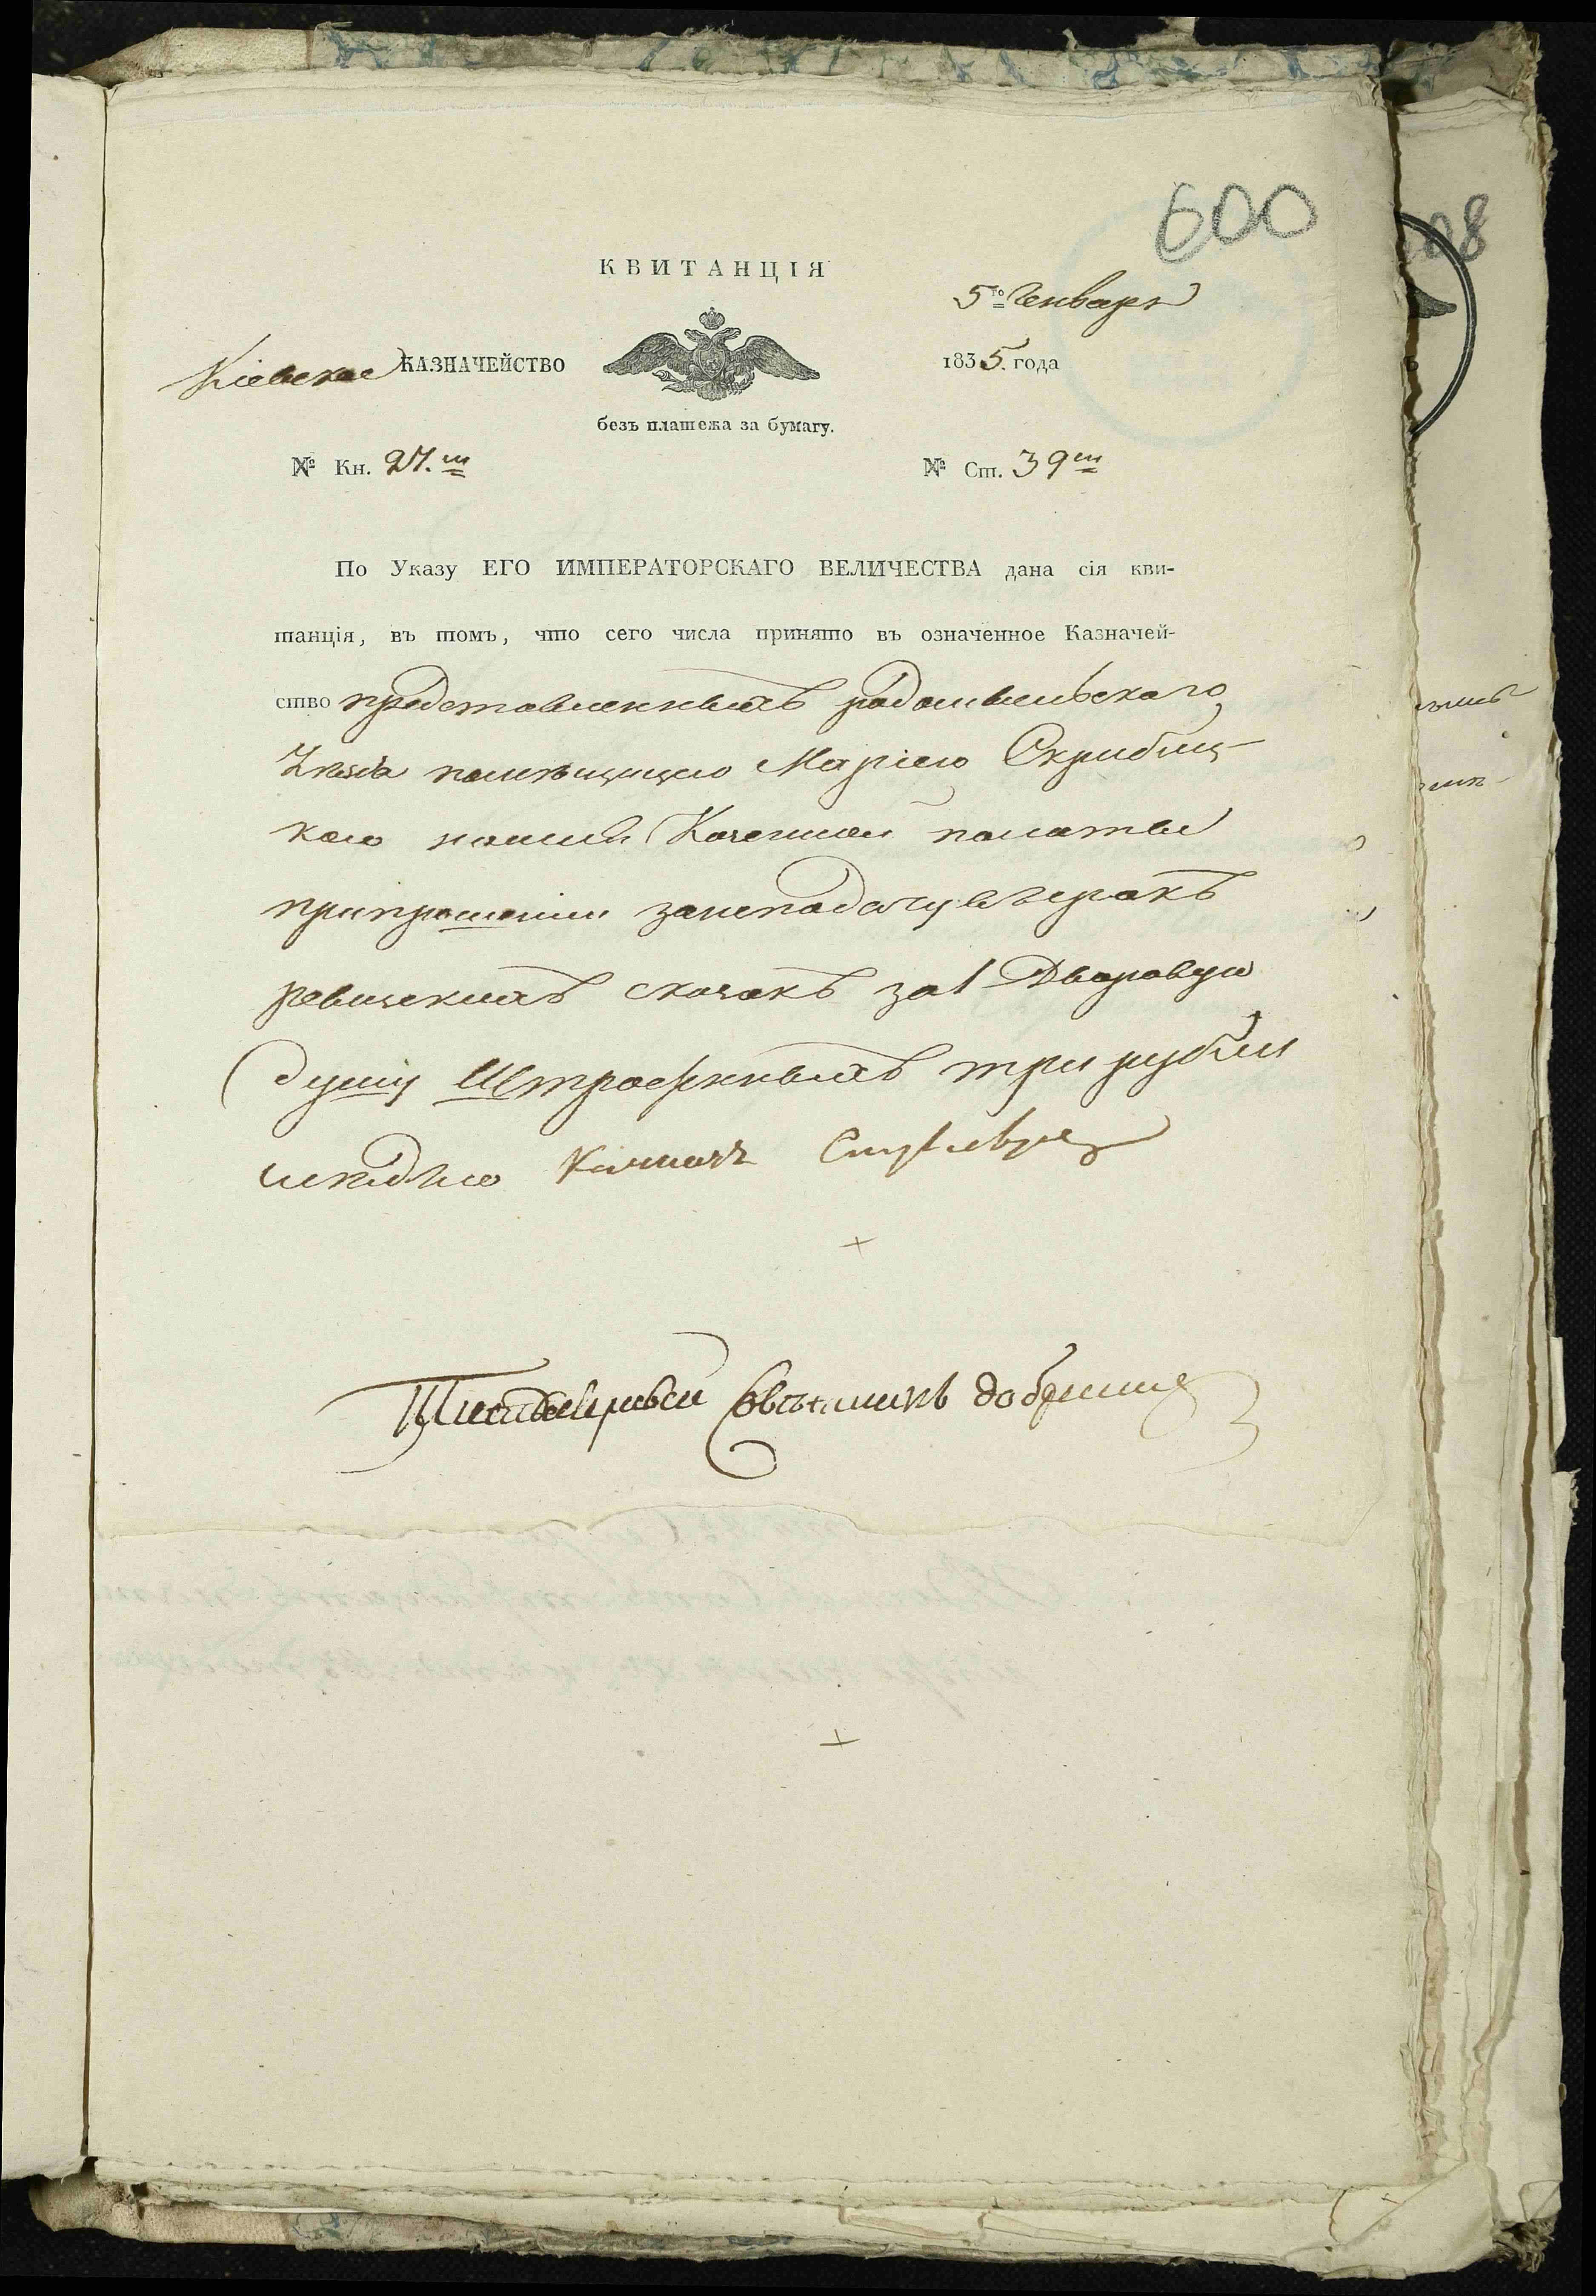 600
КВИТАНЦІЯ
5го Генваря
Кіевское КАЗНАЧЕЙСТВО
1835. года
безъ платежа за бумагу.
№ Кн. 27.м
№ Ст. 39м
По Указу ЕГО ИМПЕРАТОРСКАГО ВЕЛИЧЕСТВА дана сія кви-
танція, въ томъ, что сего числа принято въ означенное Казначей-
ство представленныхъ радомысльскаго
уезда помѣщицею Маріею Скрибиц-
кою Казенной палаты
припрошеніи занеподачу
ревизскихъ сказакъ за 1 Дворовую
душу Штрафныхъ три рубли
мѣдью
Титулярный Совѣтникъ
08